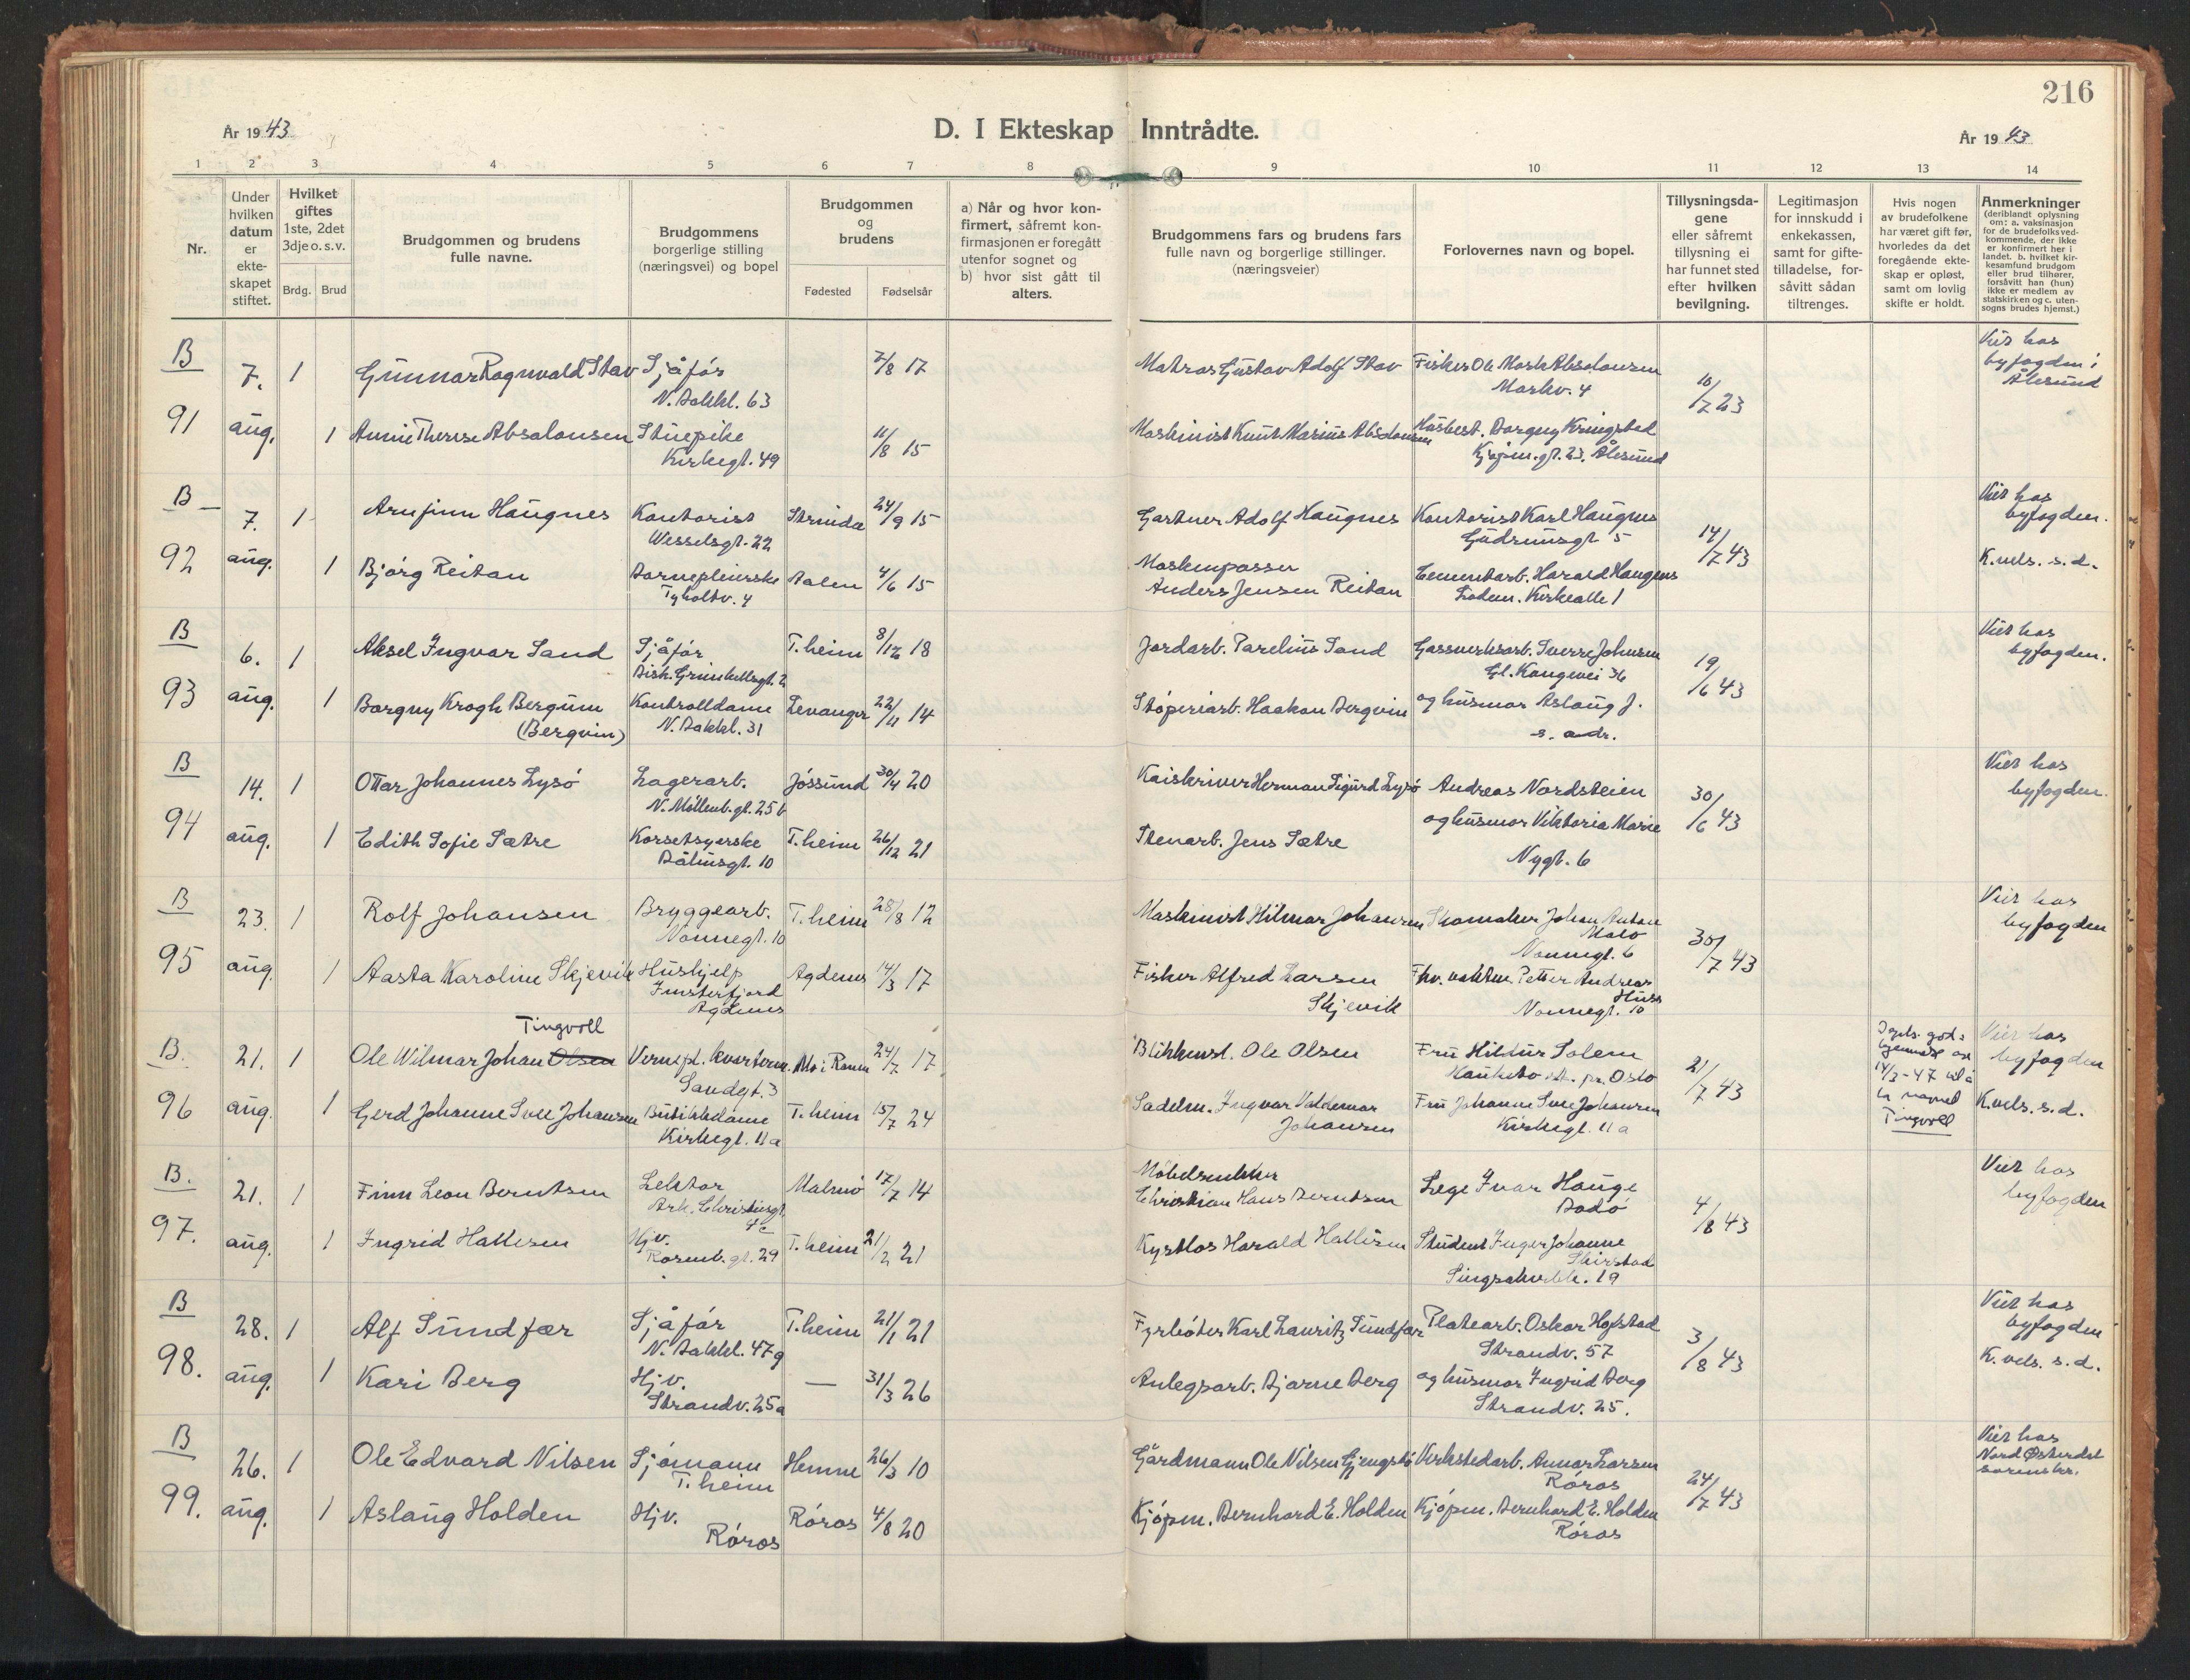 216
År 1943
D. I Ekteskap Inntrådte.
År 1943
1 2 3 4 5 6 7 8 9 10 11 12 13 14
Nr.
Under hvilken datum er ekte-skapet stiftet.
Hvilket giftes 1ste, 2det 3dje o. s. v.
Brdg. Brud
Brudgommen og brudens fulle navne.
Brudgommens borgerlige stilling (næringsvei) og bopel
Brudgommen og brudens
Fødested Fødselsår
a) Når og hvor kon-firmert, såfremt kon-firmasjonen er foregått utenfor sognet og
b) hvor sist gått til alters.
Brudgommens fars og brudens fars fulle navn og borgerlige stillinger. (næringsveier)
Forlovernes navn og bopel.
Tillysningsda-gene eller såfremt tillysning ei har funnet sted efter hvilken bevilgning.
Legitimasjon for innskudd i enkekassen, samt for gifte-tilladelse, for-såvitt sådan tiltrenges.
Hvis nogen av brudefolkene har været gift før, hvorledes da det foregående ekte-skap er opløst, samt om lovlig skifte er holdt.
Anmerkninger (deriblandt oplysning om: a. vaksinasjon for de brudefolks ved-kommende, der ikke er konfirmert her i landet. b. hvilket kir-kesamfund brudgom eller brud tilhører, forsåvitt han (hun) ikke er medlem av statskirken og c. uten-sogns brudes hjemst.)
B 7. 1 Gunnar Ragnvald Stav Sjåfór 7/8 17 Matros Gustav Adolf Stav Fisker Ole Absalonsen Viet hos
N. Bakkl. 63 10/7 23 byfogden i
Ålesund
91 aug. 1 Annie Therese Absalonsen Stuepike 11/8 15 Maskinist Knut Marius Absalonsen Husbest. Dagny Kringstad
Kirkegt. 49 Kjøpm.gt. 23. Ålesund
B 7. 1 Arnfinn Haugnes Kontorist Strinda 24/9 15 Gartner Adolf Haugnes Kontorist Karl Haugnes Viet hos
Wesselsgt. 22 Gudrunsgt 5 14/7 43 byfogden.
92 aug. 1 Bjórg Reitan Barnepleierske Aalen 4/6 15 Maskinpasser Cementarb. Harald Haugnes K.vels. s.d.
Tyholtv. 4 Anders Jensen Reitan Ladem. Kirkealle 1
B 6. 1 Aksel Ingvar Sand Sjåfór T.heim 8/12 18 Jordarb. Parelius Sand Gassverksarb. Sverre Johnsen Viet hos
Bisk. Grimkellsgt. 2 Gl. Kongevei 36 19/6 43 byfogden.
93 aug. 1 Borgny Krogh Bergum Kontrolldame Levanger 22/11 14 Stóperiarb. Haakon Bergvin og husmor Aslaug J.
(Bergvin) N. Bakkl. 31 s. adr.
B 14. 1 Ottar Johannes Lysó Lagerarb. Jóssund 30/4 20 Kaiskriver Herman Sigurd Lysó Andreas Nordsteien Viet hos
N. Möllenb.gt. 25 b og husmor Viktoria Marie 30/6 43 byfogden.
94 aug. 1 Edith Sofie Sætre Korsetsyerske T.heim 26/12 21 Stenarb. Jens Sætre Nygt. 6
Båhusgt. 10
B 23. 1 Rolf Johansen Bryggearb. T.heim 28/8 12 Maskinist Hilmar Johansen Skomaker Johan Anton Viet hos
Nonnegt. 10 Nonnegt. 6 30/7 43 byfogden
95 aug 1 Aasta Karoline Skjevik Hushjelp Agdenes 14/3 17 Fisker Alfred Larsen Fhv. vaktm. Petter Andreas Huss
Imsterfjord Skjevik Nonnegt. 10
Agdenes
Tingvoll
B. 21. 1 Ole Wilmar Johan Olsen Vernepl. kvarterm. Mo i Rana 24/7 17 Blikkensl. Ole Olsen Fru Hildur Solem Viet hos
Sandgt. 3 Hauketo st. pr. Oslo 21/7 43 byfogden
14/3-47
navnet
Tingvoll
96 aug. 1 Gerd Johanne Svee Johansen Butikkdame T.heim 15/7 24 Sadelm. Ingvar Valdemar Fru Johanne Svee Johansen K.vels. s.d.
Kirkegt. 11 a Johansen Kirkegt. 11 a
B. 21. 1 Finn Leon Berntsen Lektor Malmö 17/7 14 Möbelsnekker Lege Ivar Hauge Viet hos
Ark. Christiesgt. 4c Christian Hans Berntsen Bodó 4/8 43 byfogden
97. aug. 1 Ingrid Hallesen Hjv. T.heim 21/2 21 Kystlos Harald Hallesen Student Inger Johanne
Rosenb.gt. 29 Skirstad
Singsakerbk. 19
B 28. 1 Alf Sundfær Sjåfór T.heim 21/1 21 Fyrbóter Karl Lauritz Sundfær Platearb. Oskar Hofstad Viet hos
N. Bakkl. 47 g Strandv. 57 3/8 43 byfogden
98. aug. 1 Kari Berg Hjv. — 31/3 26 Anlegsarb. Bjarne Berg og husmor Ingrid Berg K. vels. s.d.
Strandv. 25a Strandv. 25.
B 26. 1 Ole Edvard Nilsen Sjómann Hemne 26/3 10 Gårdmann Ole Nilsen Gjengstó Verkstedarb. Annar Larsen Viet hos
T.heim Róros 24/7 43 Nord Østerdal
sorenskr.
99. aug. 1 Aslaug Holden Hjv. Róros 4/8 20 Kjópm. Bernhard E. Holden Kjópm. Bernhard E. Holden
Róros Róros